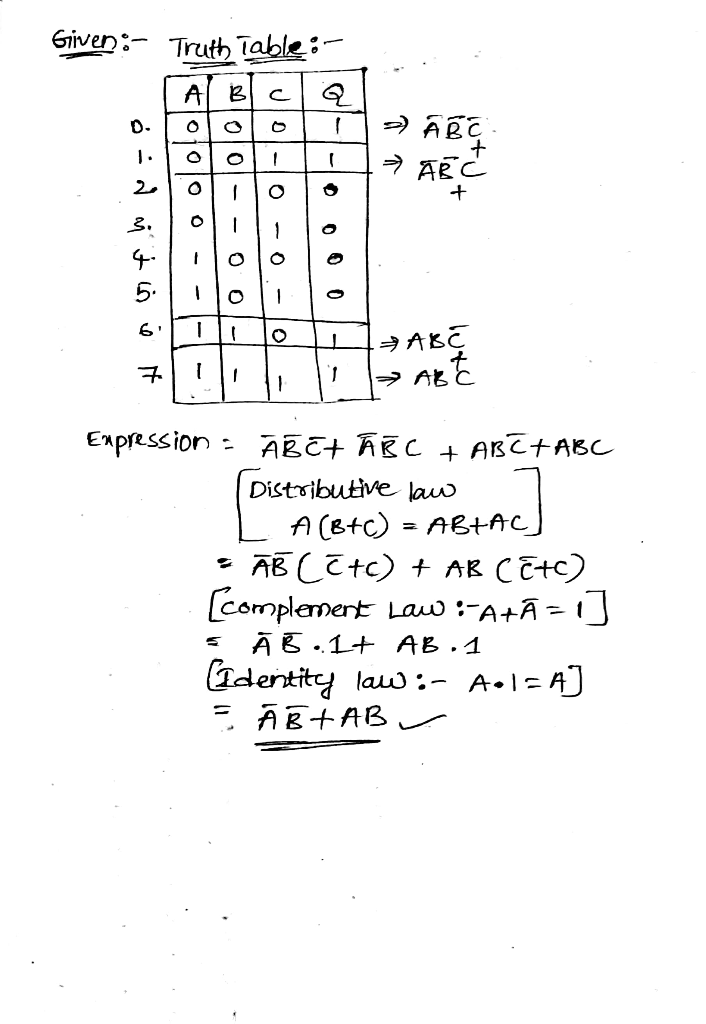 Given:- Truth Table:-
A B C Q
0. 0 0 0 1 ⇒ A̅B̅C̅
+
1. 0 0 1 1 ⇒ A̅B̅C
+
2. 0 1 0 0
3. 0 1 1 0
4. 1 0 0 0
5. 1 0 1 0
6. 1 1 0 1 ⇒ ABC̅
+
7 1 1 1 1 ⇒ ABC
Expression = A̅B̅C̅+ A̅B̅C + ABC̅+ABC
[Distributive law
A(B+C) = AB+AC]
= A̅B̅(C̅+C) + AB(C̅+C)
[complement Law :- A+A̅=1]
= A̅B̅.1+ AB.1
[Identity law:- A•1=A]
= A̅B̅+AB ✓